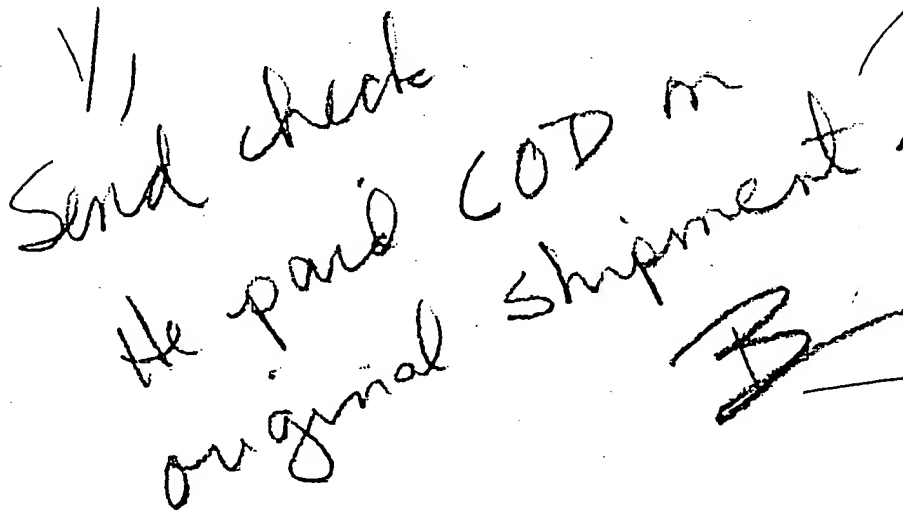 Send check
He paid COD on
original shipment.
B